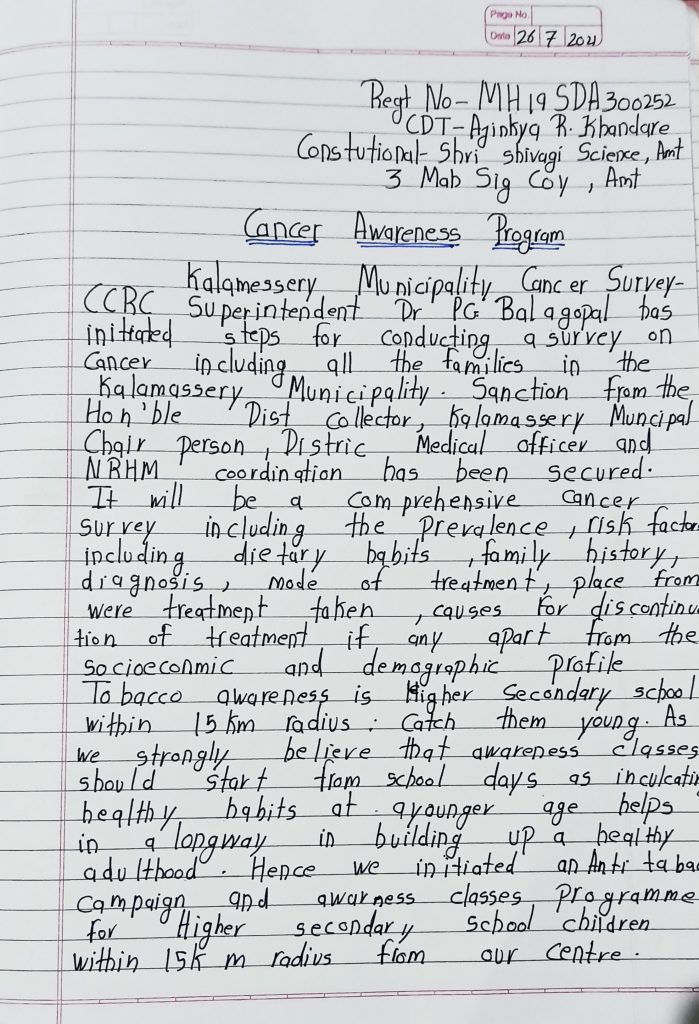 Page No.
Date 26 7 2021
Regt No - MH19SDA300252
CDT - Ajinkya R. Khandare
Constutional - Shri shivagi Science, Amt
3 Mah Sig Coy, Amt
Cancer Awareness Program
Kalamessery Municipality Cancer Survey-
CCRC Superintendent Dr PG Balagopal has
initiated steps for conducting a survey on
Cancer including all the families in the
Kalamassery Municipality. Sanction from the
Hon'ble Dist collector, Kalamassery Muncipal
Chair person, Distric Medical officer and
NRHM coordination has been secured.
It will be a comprehensive cancer
survey including the prevalence, risk factor
including dietary habits, family history,
diagnosis, mode of treatment, place from
were treatment taken, causes for discontinu
tion of treatment if any apart from the
socioeconmic and demographic profile
Tobacco awareness is Higher Secondary school
within 15 km radius: Catch them young. As
we strongly believe that awareness classes
should start from school days as inculcatin
healthy habits at a younger age helps
in a longway in building up a healthy
adulthood. Hence we initiated an Anti taba
Campaign and awarness classes programme
for Higher secondary school children
within 15k m radius from our centre.